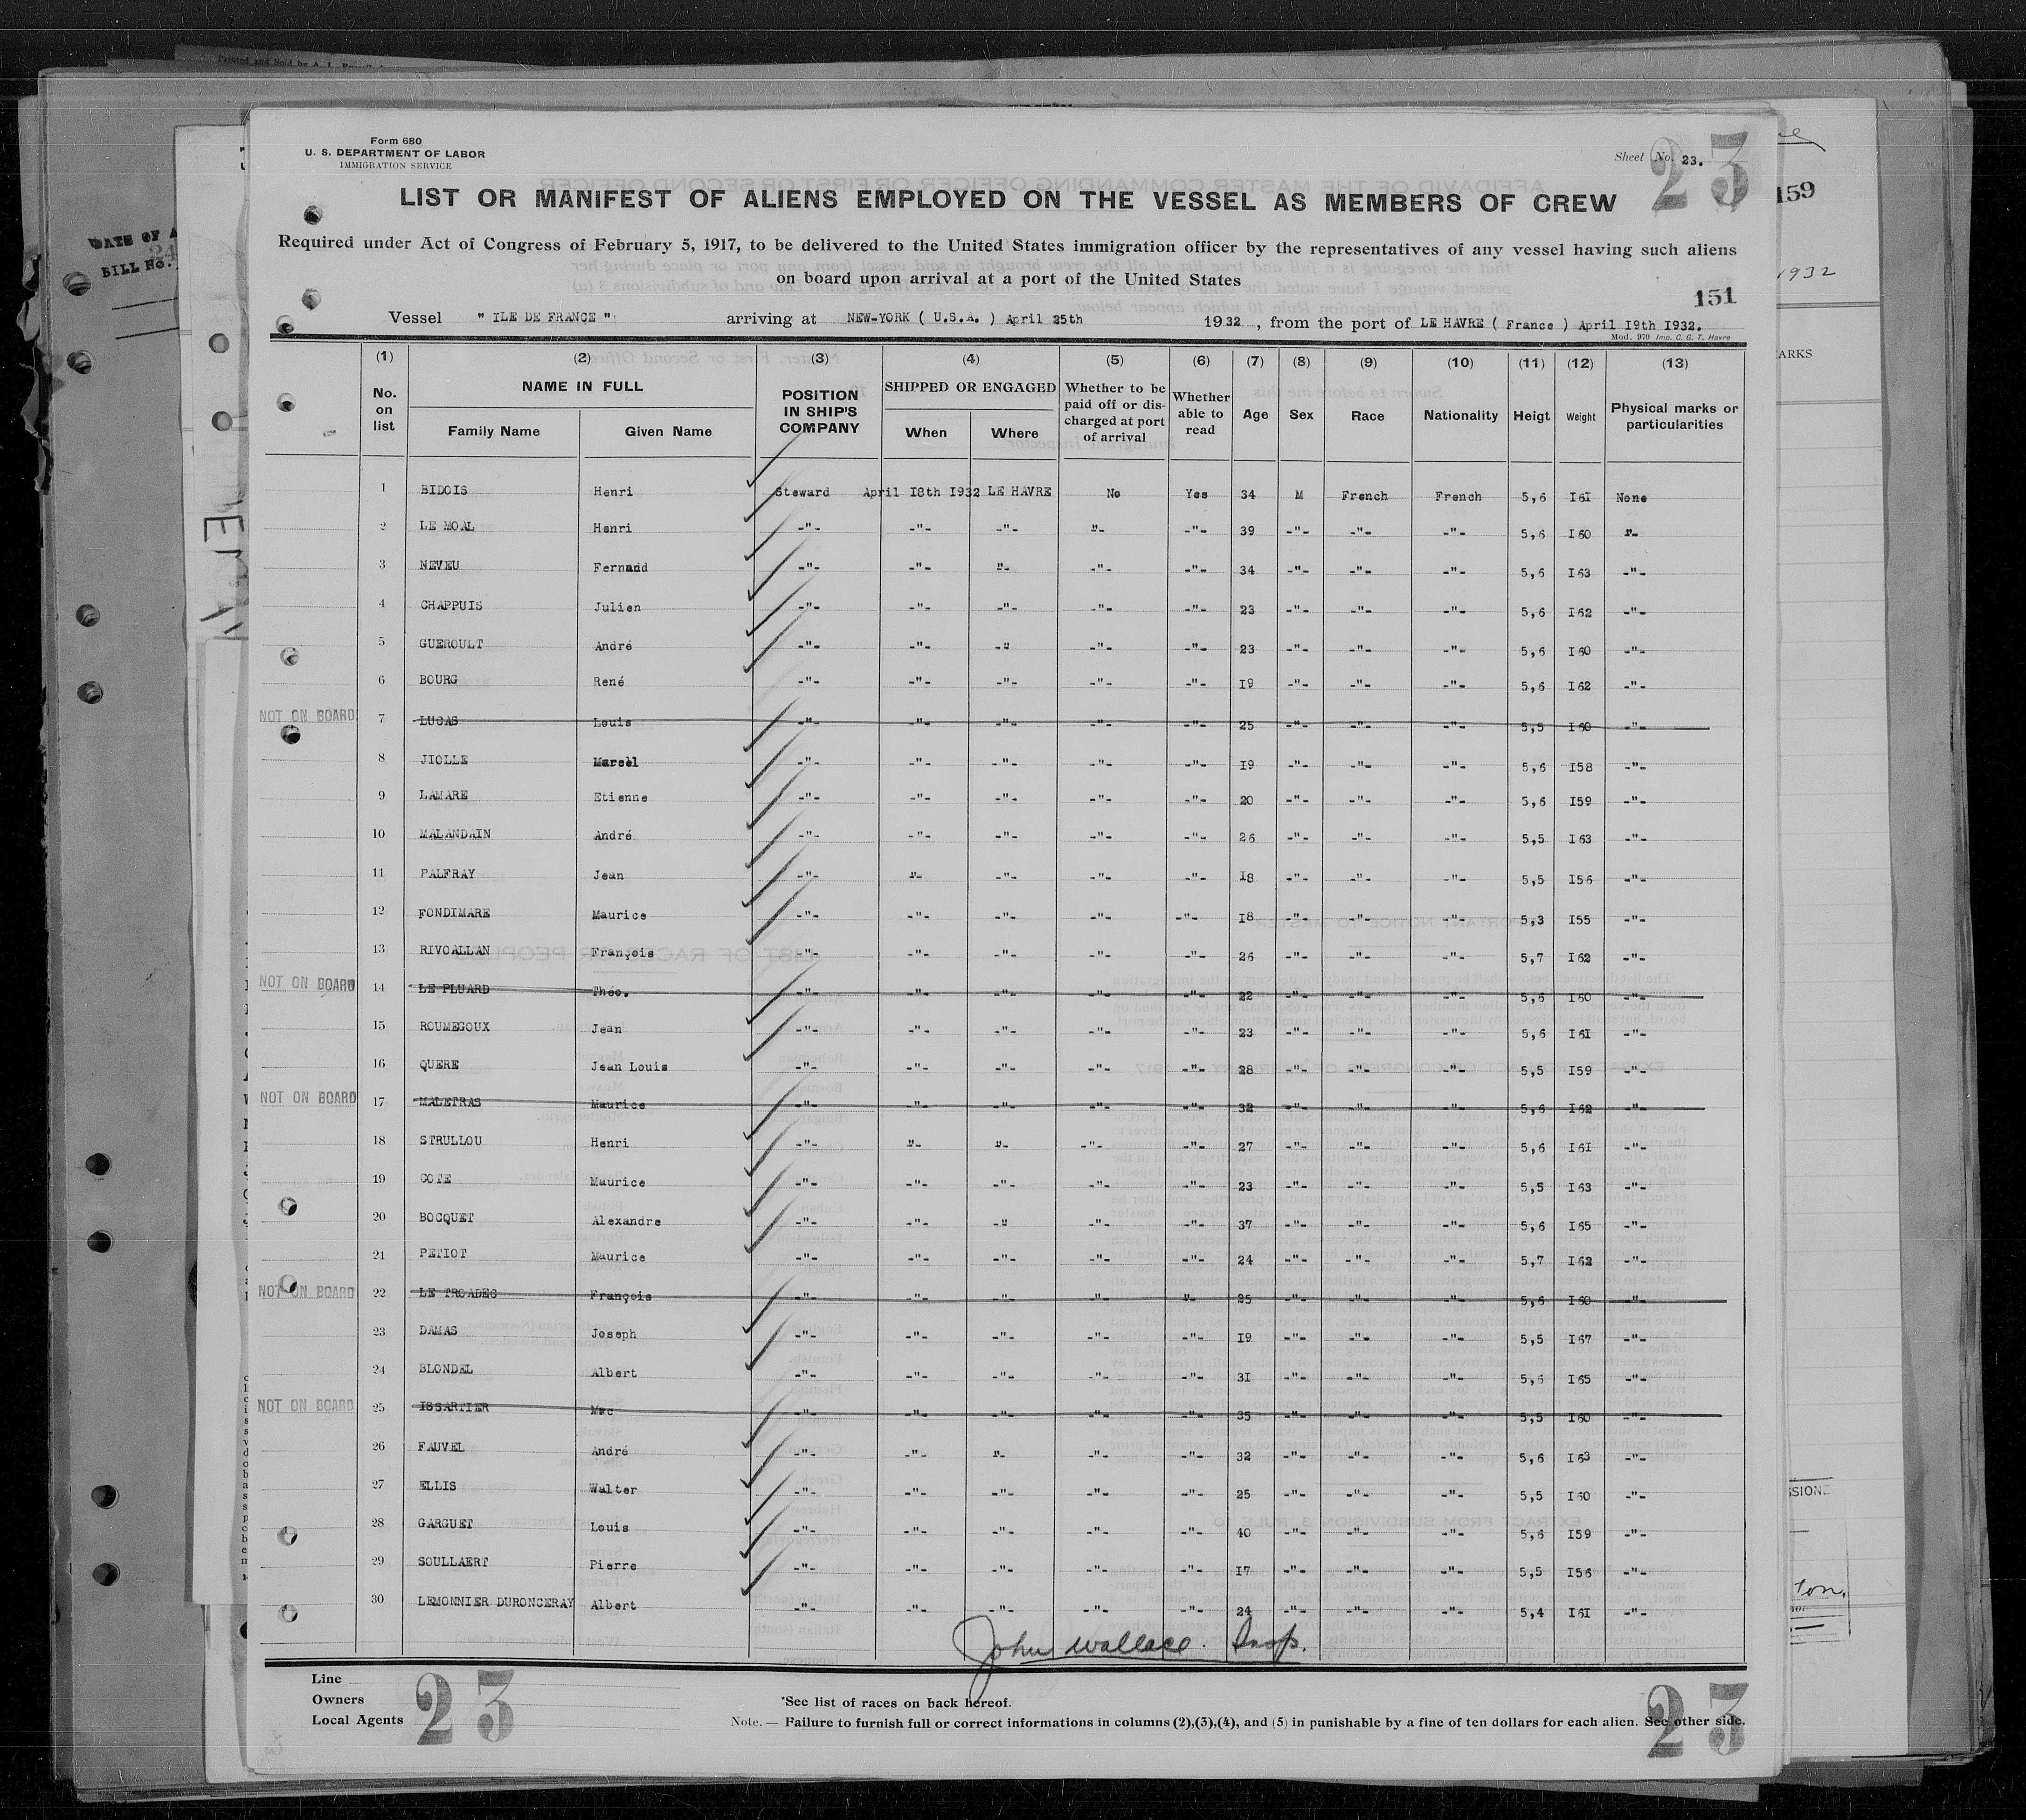 Form 680
U. S. DEPARTMENT OF LABOR
IMMIGRATION SERVICE
Sheet No. 23.
23
LIST OR MANIFEST OF ALIENS EMPLOYED ON THE VESSEL AS MEMBERS OF CREW
Required under Act of Congress of February 5, 1917, to be delivered to the United States immigration officer by the representatives of any vessel having such aliens
on board upon arrival at a port of the United States
151
Vessel " ILE DE FRANCE " arriving at NEW-YORK ( U.S.A. ) April 25th 1932 , from the port of LE HAVRE ( France ) April 19th 1932.
Mod. 970 Imp. C. G. T. Havre
(1) (2) (3) (4) (5) (6) (7) (8) (9) (10) (11) (12) (13)
No. on list NAME IN FULL Family Name Given Name POSITION IN SHIP'S COMPANY SHIPPED OR ENGAGED When Where Whether to be paid off or discharged at port of arrival Whether able to read Age Sex Race Nationality Heigt Weight Physical marks or particularities
1 BIDOIS Henri Steward April 18th 1932 LE HAVRE No Yes 34 M French French 5,6 161 None
2 LE MOAL Henri -"- -"- -"- "- -"- 39 -"- -"- -"- 5,6 160 "-
3 NEVEU Fernand -"- -"- "- -"- -"- 34 -"- -"- -"- 5,6 163 -"-
4 CHAPPUIS Julien -"- -"- -"- -"- -"- 23 -"- -"- -"- 5,6 162 -"-
5 GUEROULT André -"- -"- -" -"- -"- 23 -"- -"- -"- 5,6 160 -"-
6 BOURG René -"- -"- -"- -"- -"- 19 -"- -"- -"- 5,6 162 -"-
NOT ON BOARD 7 LUCAS Louis -"- -"- -"- -"- -"- 25 -"- -"- -"- 5,5 160 -"-
8 JIOLLE Marcel -"- -"- -"- -"- -"- 19 -"- -"- -"- 5,6 158 -"-
9 LAMARE Etienne -"- -"- -"- -"- -"- 20 -"- -"- -"- 5,6 159 -"-
10 MALANDAIN André -"- -"- -"- -"- -"- 26 -"- -"- -"- 5,5 163 -"-
11 PALFRAY Jean -"- "- -"- -"- -"- 18 -"- -"- -"- 5,5 156 -"-
12 FONDIMARE Maurice -"- -"- -"- -"- -"- 18 -"- -"- -"- 5,3 155 -"-
13 RIVOALLAN François -"- -"- -"- -"- -"- 26 -"- -"- -"- 5,7 162 -"-
NOT ON BOARD 14 LE PLUARD Théo. -"- -"- -"- -"- -"- 22 -"- -"- -"- 5,6 160 -"-
15 ROUMEGOUX Jean -"- -"- -"- -"- -"- 23 -"- -"- -"- 5,6 161 -"-
16 QUERE Jean Louis -"- -"- -"- -"- -"- 28 -"- -"- -"- 5,5 159 -"-
NOT ON BOARD 17 MALETRAS Maurice -"- -"- -"- -"- -"- 32 -"- -"- -"- 5,6 162 -"-
18 STRULLOU Henri -"- "- "- -"- -"- 27 -"- -"- -"- 5,6 161 -"-
19 COTE Maurice -"- -"- -"- -"- -"- 23 -"- -"- -"- 5,5 163 -"-
20 BOCQUET Alexandre -"- -"- -" -"- -"- 37 -"- -"- -"- 5,6 165 -"-
21 PETIOT Maurice -"- -"- -"- -"- -"- 24 -"- -"- -"- 5,7 162 -"-
NOT ON BOARD 22 LE TROADEC François -"- -"- -"- -"- "- 25 -"- -"- -"- 5,6 160 -"-
23 DAMAS Joseph -"- -"- -"- -"- -"- 19 -"- -"- -"- 5,5 167 -"-
24 BLONDEL Albert -"- -"- -"- -"- -"- 31 -"- -"- -"- 5,6 165 -"-
NOT ON BOARD 25 ISSARTIER Mac -"- -"- -"- -"- -"- 35 -"- -"- -"- 5,5 160 -"-
26 FAUVEL André -"- -"- "- -"- -"- 32 -"- -"- -"- 5,6 163 -"-
27 ELLIS Walter -"- -"- -"- -"- -"- 25 -"- -"- -"- 5,5 160 -"-
28 GARGUET Louis -"- -"- -"- -"- -"- 40 -"- -"- -"- 5,6 159 -"-
29 SOULLAERT Pierre -"- -"- -"- -"- -"- 17 -"- -"- -"- 5,5 156 -"-
30 LEMONNIER DURONCERAY Albert -"- -"- -"- -"- -"- 24 -"- -"- -"- 5,4 161 -"-
John Wallace. Insp.
Line
Owners
Local Agents
23
*See list of races on back hereof.
Note. — Failure to furnish full or correct informations in columns (2),(3),(4), and (5) in punishable by a fine of ten dollars for each alien. See other side.
23
159
1932
ARKS
BILL No.